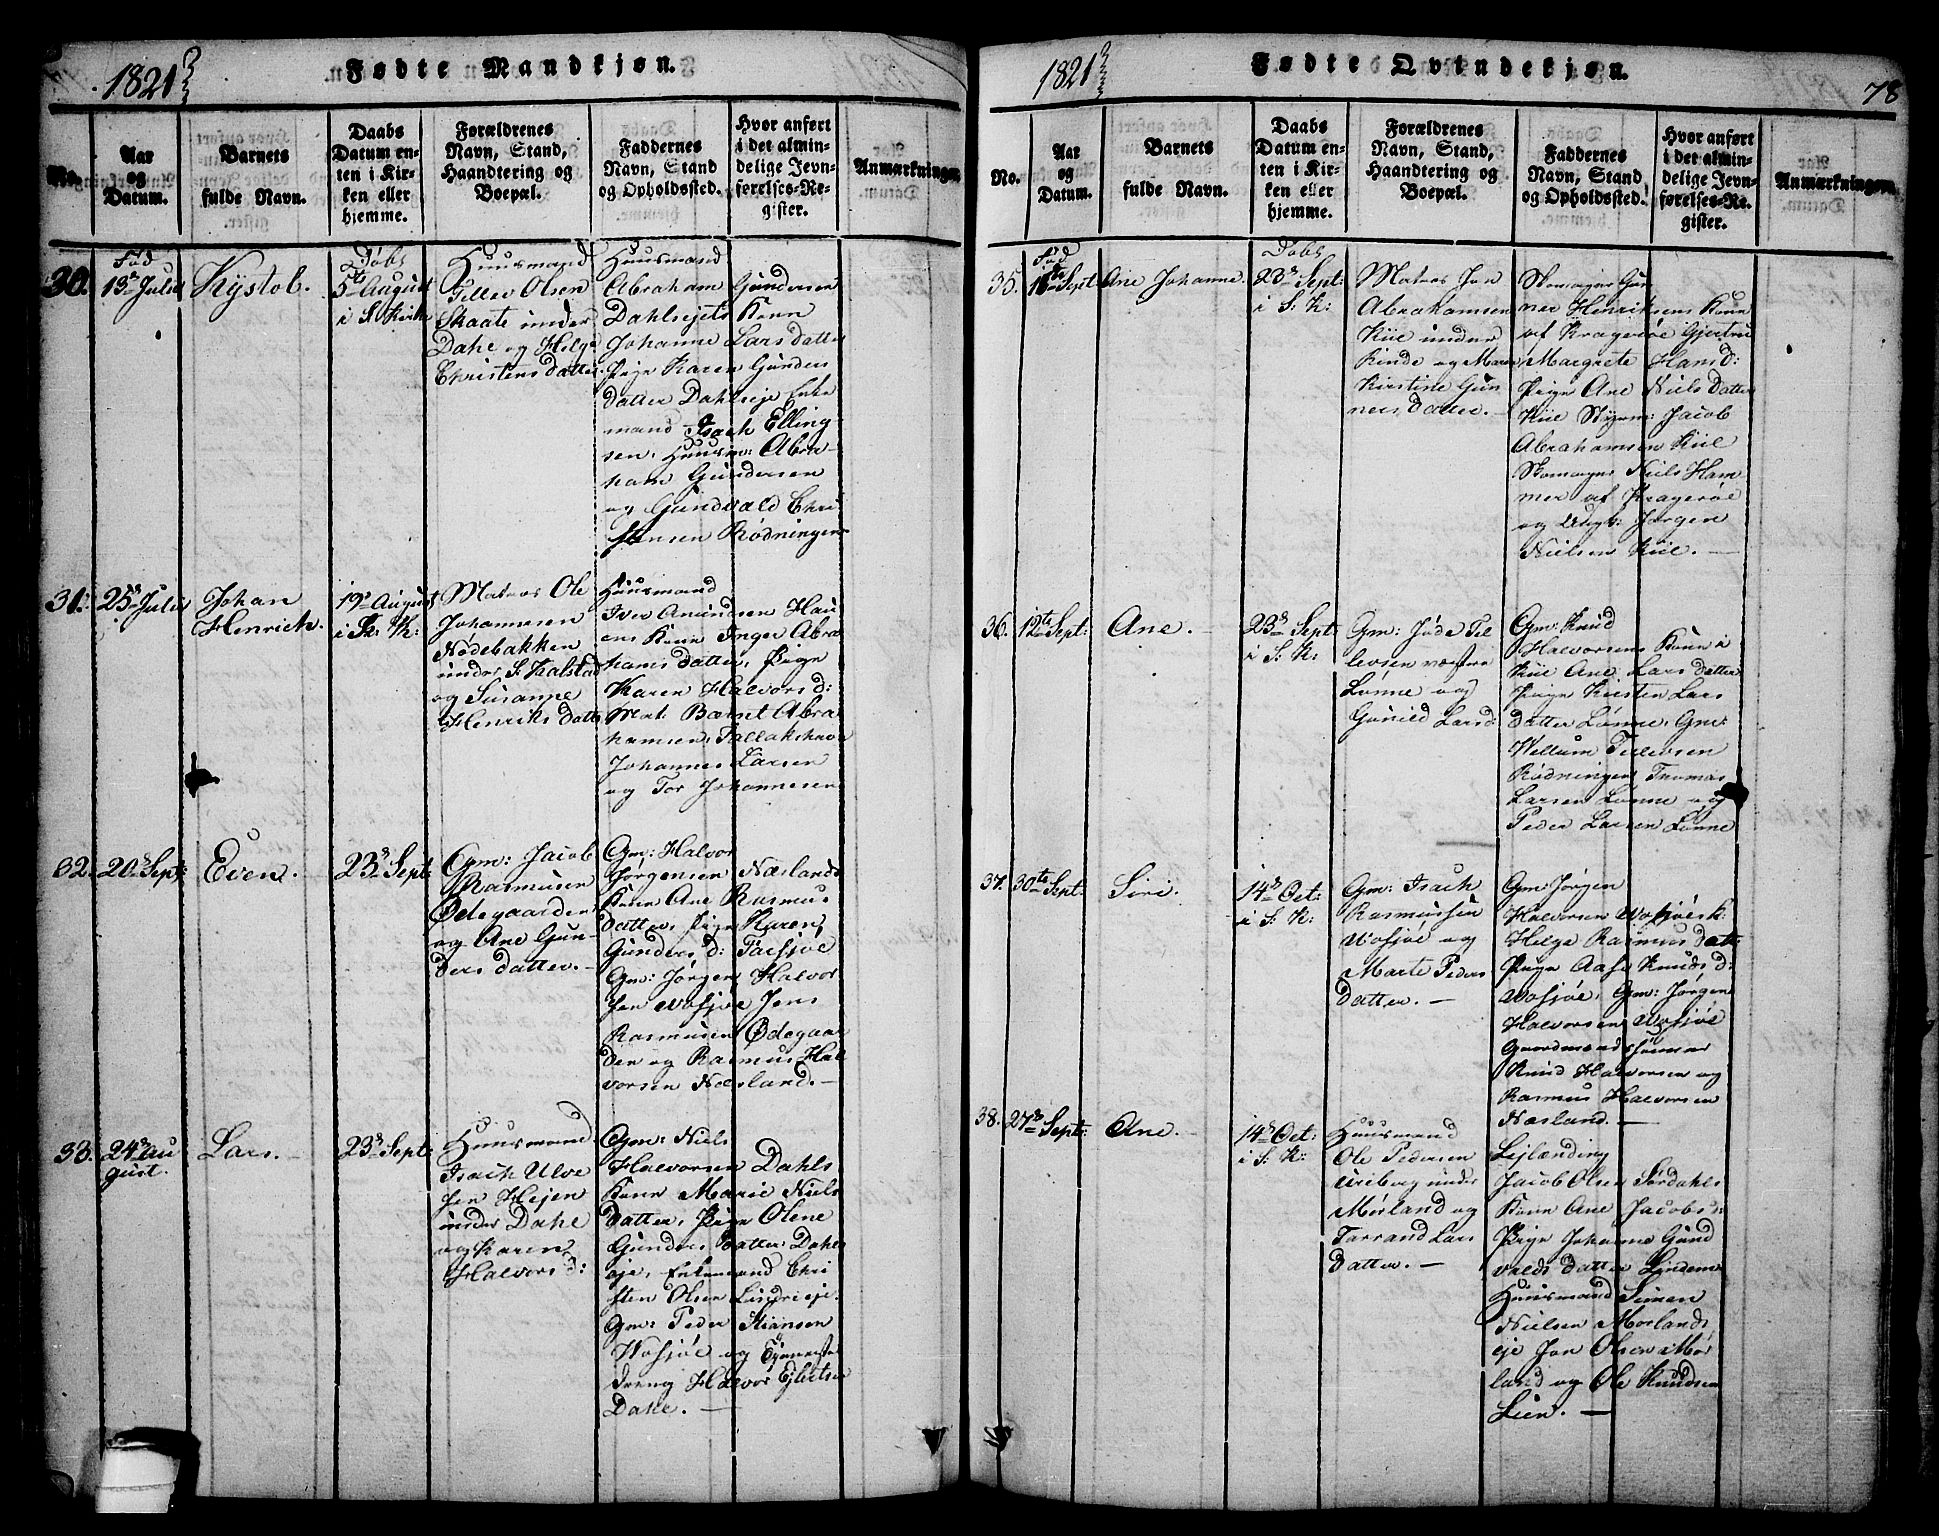 1821
Fødte Mandkjøn.
No.
Aar
og
Datum.
Barnets
fulde Navn.
Daabs
Datum en-
ten i Kir-
ken eller
hjemme.
Forældrenes
Navn, Stand,
Haandtering og
Boepæl.
Faddernes
Navn, Stand
og Opholdssted.
Hvor anført
i det almin-
delige Jevn-
førelses-Re-
gister.
Anmærkninger.
30.
Fød
13de Julii
Kystol.
Døbt
5te August
i S. Kirke
Huusmand
Tellev Olsen
Skaate under
Dahl og Helge
Christens datter
Huusmand
Abraham Gundersen
Dahlsejets Kone
Johanne Lars datter
Pige Karen Gunders
datter Dahlseje Enke
mand Isach Elling-
sen, Huusm: Abra-
ham Gundersen
og Gundvald Chri
stensen Rødningen
31.
25de Julii
Johan
Henrich.
19de August
i Sk: K:
Matros Ole
Johannesen
Nødebakken
under S. Kalstad
og Susanne
Henriks datter
Huusmand
Iver Amundsen Hau
ens Kone Inger Abra
hams datter, Pige
Karen Halvors d:
Mat: Bærnt Abra
hamsen, Tallakshavn
Johannes Larsen
og Tor Johannesen
32.
20de Sept:
Even.
23de Sept:
Gm: Jacob
Rasmusen
Ødegaarden
og Ane Gun-
ders datter.
Gm: Halvor
Jørgensen Næslands
Kone Ane Rasmus
datter, Pige Karen
Gunders d: Taasjøe
Gm: Jørgen Halvor
sen Wasjøe Jens
Rasmusen Ødegaar
den og Rasmus Hal
vorsen Næsland.
33.
24de Au
gust.
Lars.
23de Sept:
Huusmand
Isach Ulve
sen Hejen
under Dahl
og Karen
Halvors d:
Gm: Niels
Halvorsen Dahls
Kone Marie Niels
datter, Pige Olene
Gunders datter Dahls
eje, Enkemand Chri
sten Olsen Lundrieje
Gm: Peder Stiansen
Wasjøe og Tjenneste
dreng Halvor Ejbetsen
Dahl.
1821
Fødte Qvindekjøn.
78
No.
Aar
og
Datum.
Barnets
fulde Navn.
Daabs
Datum en-
ten i Kir-
ken eller
hjemme.
Forældrenes
Navn, Stand,
Haandtering og
Boepæl.
Faddernes
Navn, Stand
og Opholdssted.
Hvor anført
i det almin-
delige Jevn-
førelses-Re-
gister.
Anmærkninger.
35.
Fød
Sept:
Ane Johanne.
Døbt
23de Sept:
i S: K:
Matros Jon
Abrahamsen
Kiil under
Rinde og Maren
Kirstine Gun
ners datter.
Skomager Gun
ner Henriksens Kone
af Kragerøe Gjertru
Margrete Hans d:
Pige Ane Niels datter
Kiil Styrm: Jacob
Abrahamsen Kiil
Skomager Niels Ham
mer af Kragerøe
og Ungk: Jørgen
Nielsen Kiil.
36.
12te Sept:
Ane.
23de Sept:
i S: K:
Gm: Jøde Tel
levsen væstre
Lønne og
Gunild Larsd:
Gm: Knud
Halvorsens Kone i
Kiil Ane Lars datter
Pige Kirsten Lars
datter Lønne, Gm:
Wellum Tellevsen
Rødningen Thomas
Larsen Lønne og
Peder Larsen Lønne
37.
30te Sept:
Siri.
14de Oct:
i S: K:
Gm: Isach
Rasmussen
Wasjøe og
Marte Peders
datter.
Gm: Jørgen
Halvorsen Wasjøes K:
Helge Rasmus datt:
Pige Aase Knuds d:
Wasjøe, Gm: Jørgen
Halvorsen Wasjøe
Gaardmands sønner
Knud Halvorsen og
Rasmus Halvorsen
Næsland.
38.
27de Sept:
Ane.
14de Oct:
i S: K:
Huusmand
Ole Pedersen
under
Mørland og
Tarrand Lars
datter.
Lejlænding
Jacob Olsen Sørdahls
Kone Ane Jacobs d:
Pige Johanne Gund
valds datter Lindem
Huusmand Simen
Nielsen Mørlands
eje Jon Olsen Mør
land og Ole Knudsen
Lien.